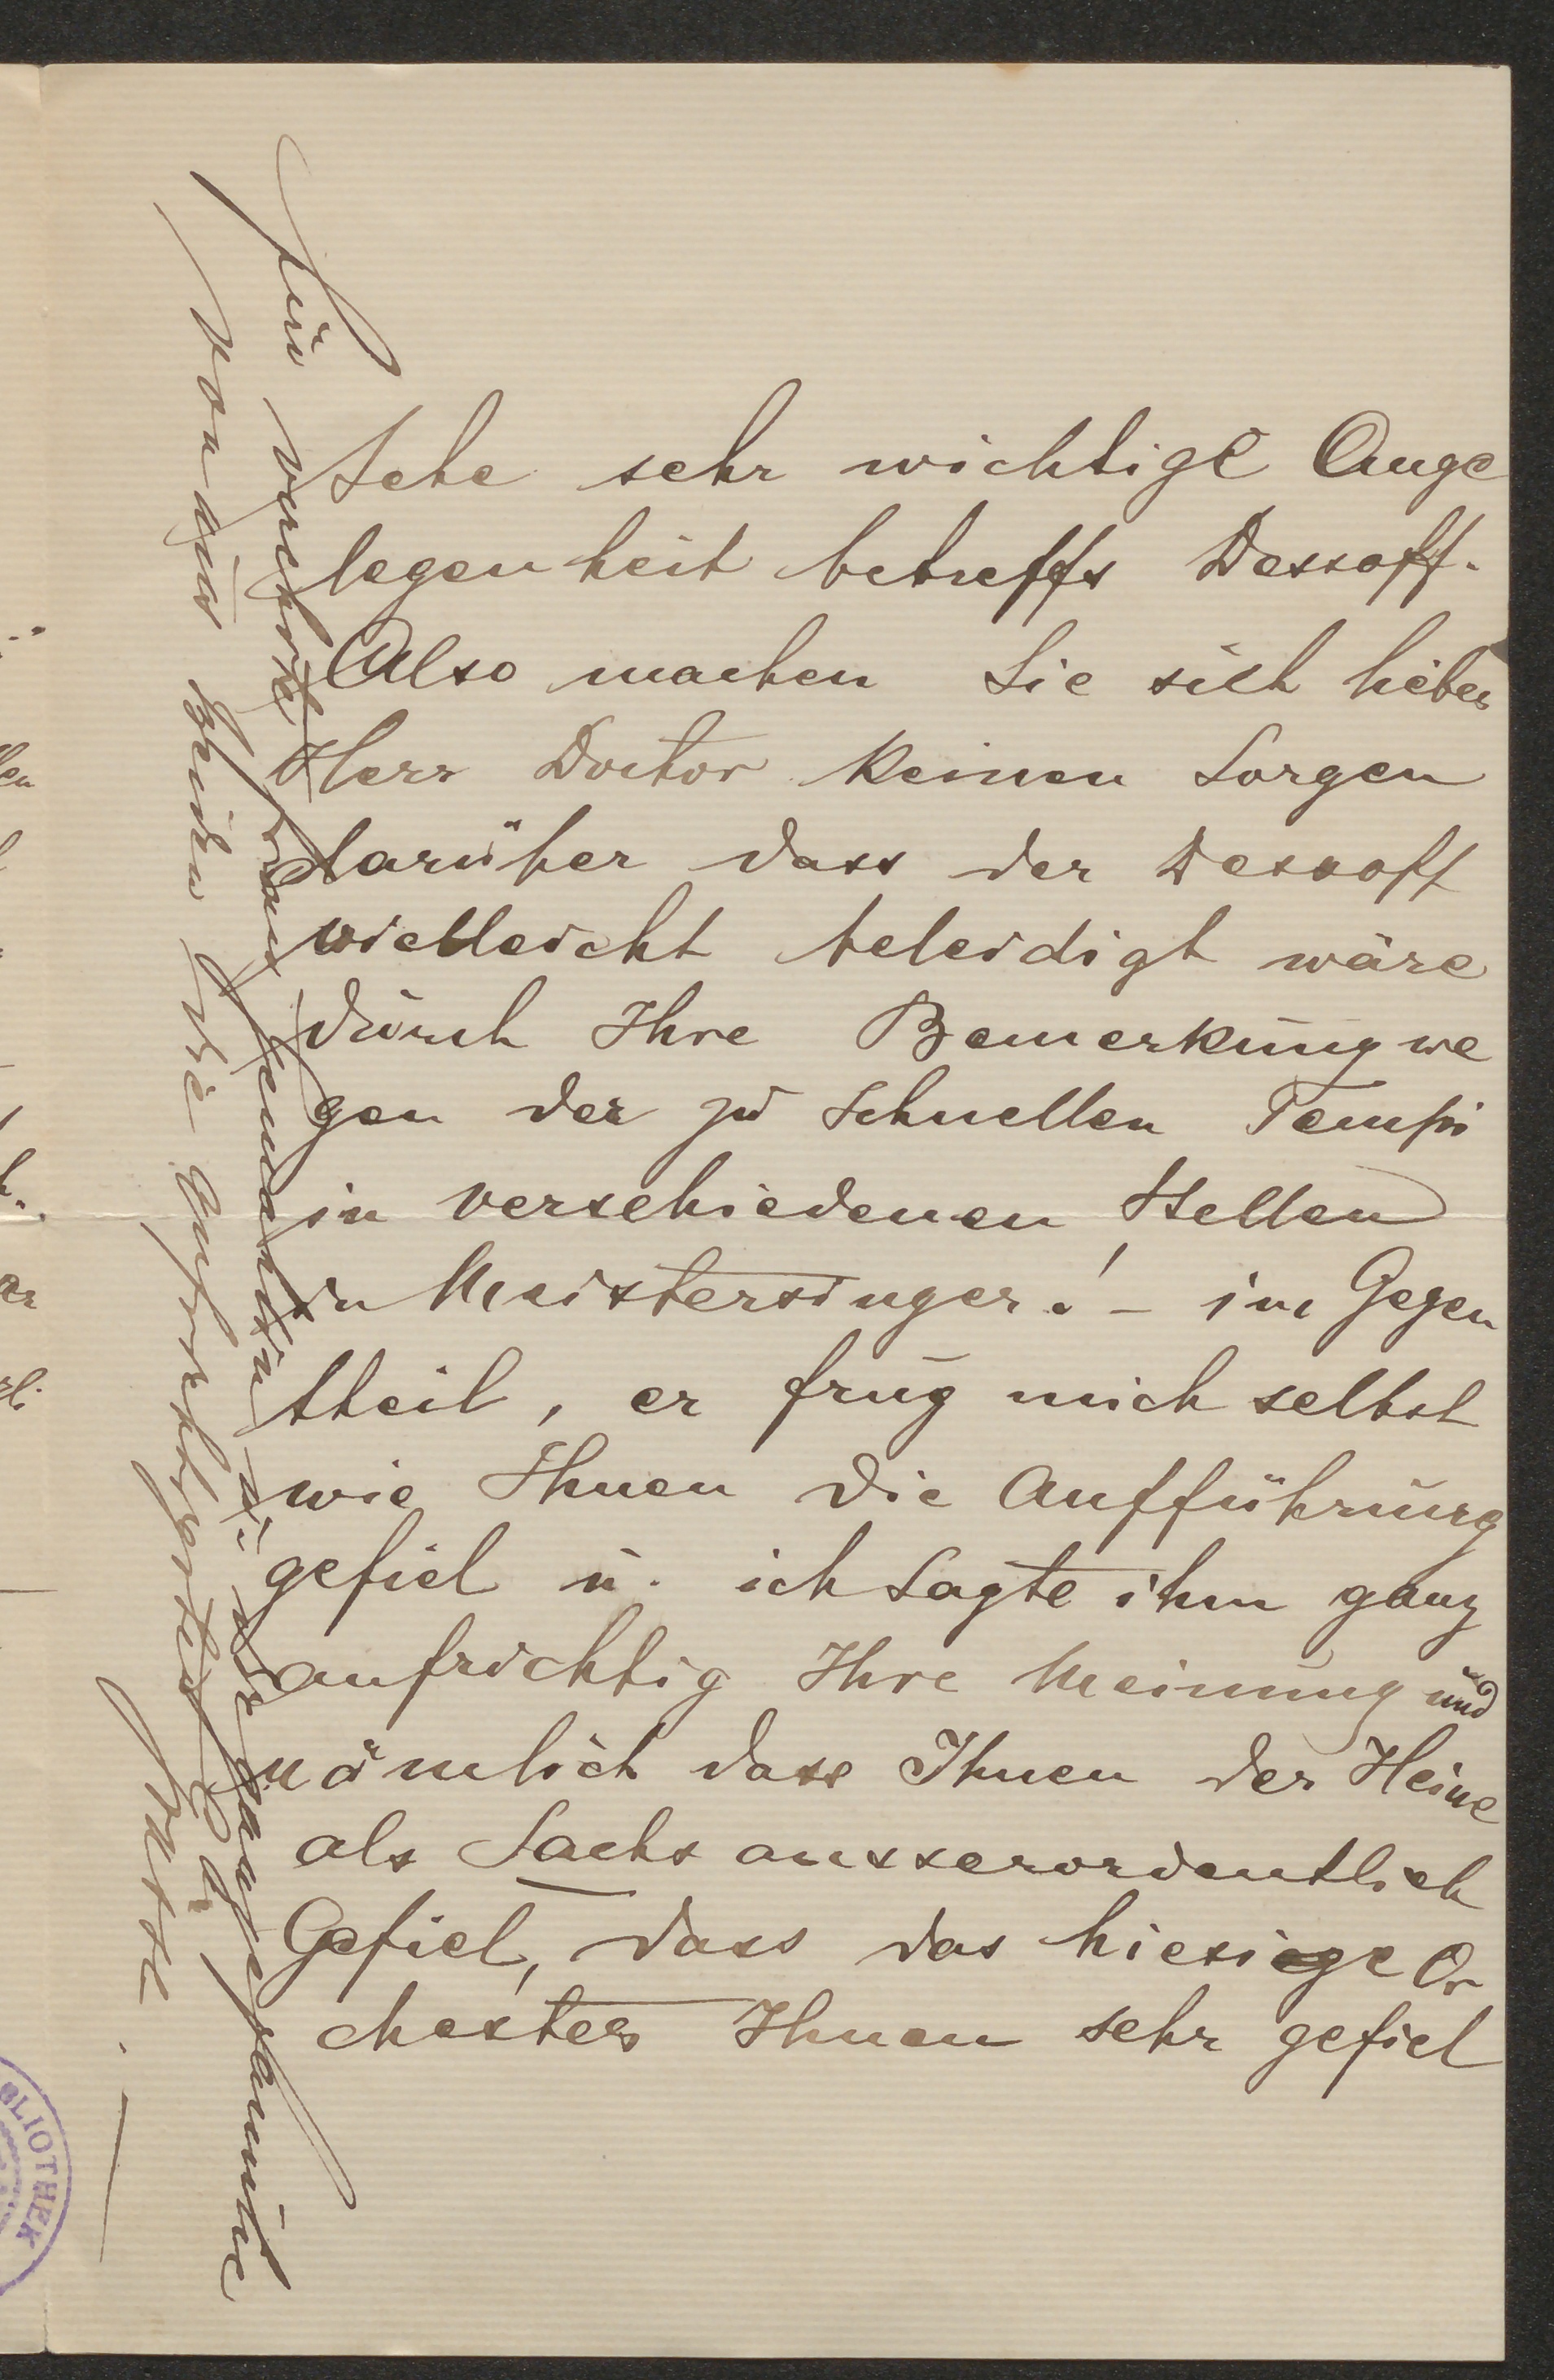 sehe sehr wichtige Ange
legenheit betreffs Dessoff.
Also machen Sie sich lieber
Herr Doctor keinen Sorgen
darüber dass der Dessoff
vielleicht beleidigt wäre
durch Ihre Bemerkung we
gen der zu schnellen Tempi
in verschiedenen Stellen
in Meistersinger! – im Gegen
theil, er frug mich selbst
wie Ihnen die Aufführung
gefiel u. ich sagte ihm ganz
aufrichtig Ihre Meinung und
nämlich dass Ihnen der Heine
als Sachs ausserordentlich
Gefiel, dass das hiesige Or
chester Ihnen sehr gefiel
Ihre verehrte Frau Gemahlin u. die ganze Familie
von uns beiden die aufrichtigsten Grüsse. –
BLIOTHEK